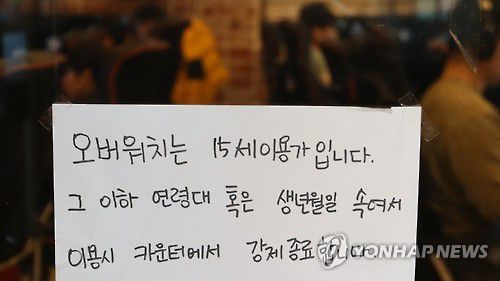 오버워치는 15세이용가입니다.
그 이하 연령대 혹은 생년월일 속여서
이용시 카운터에서 강제종료합니다
YONHAP NEWS